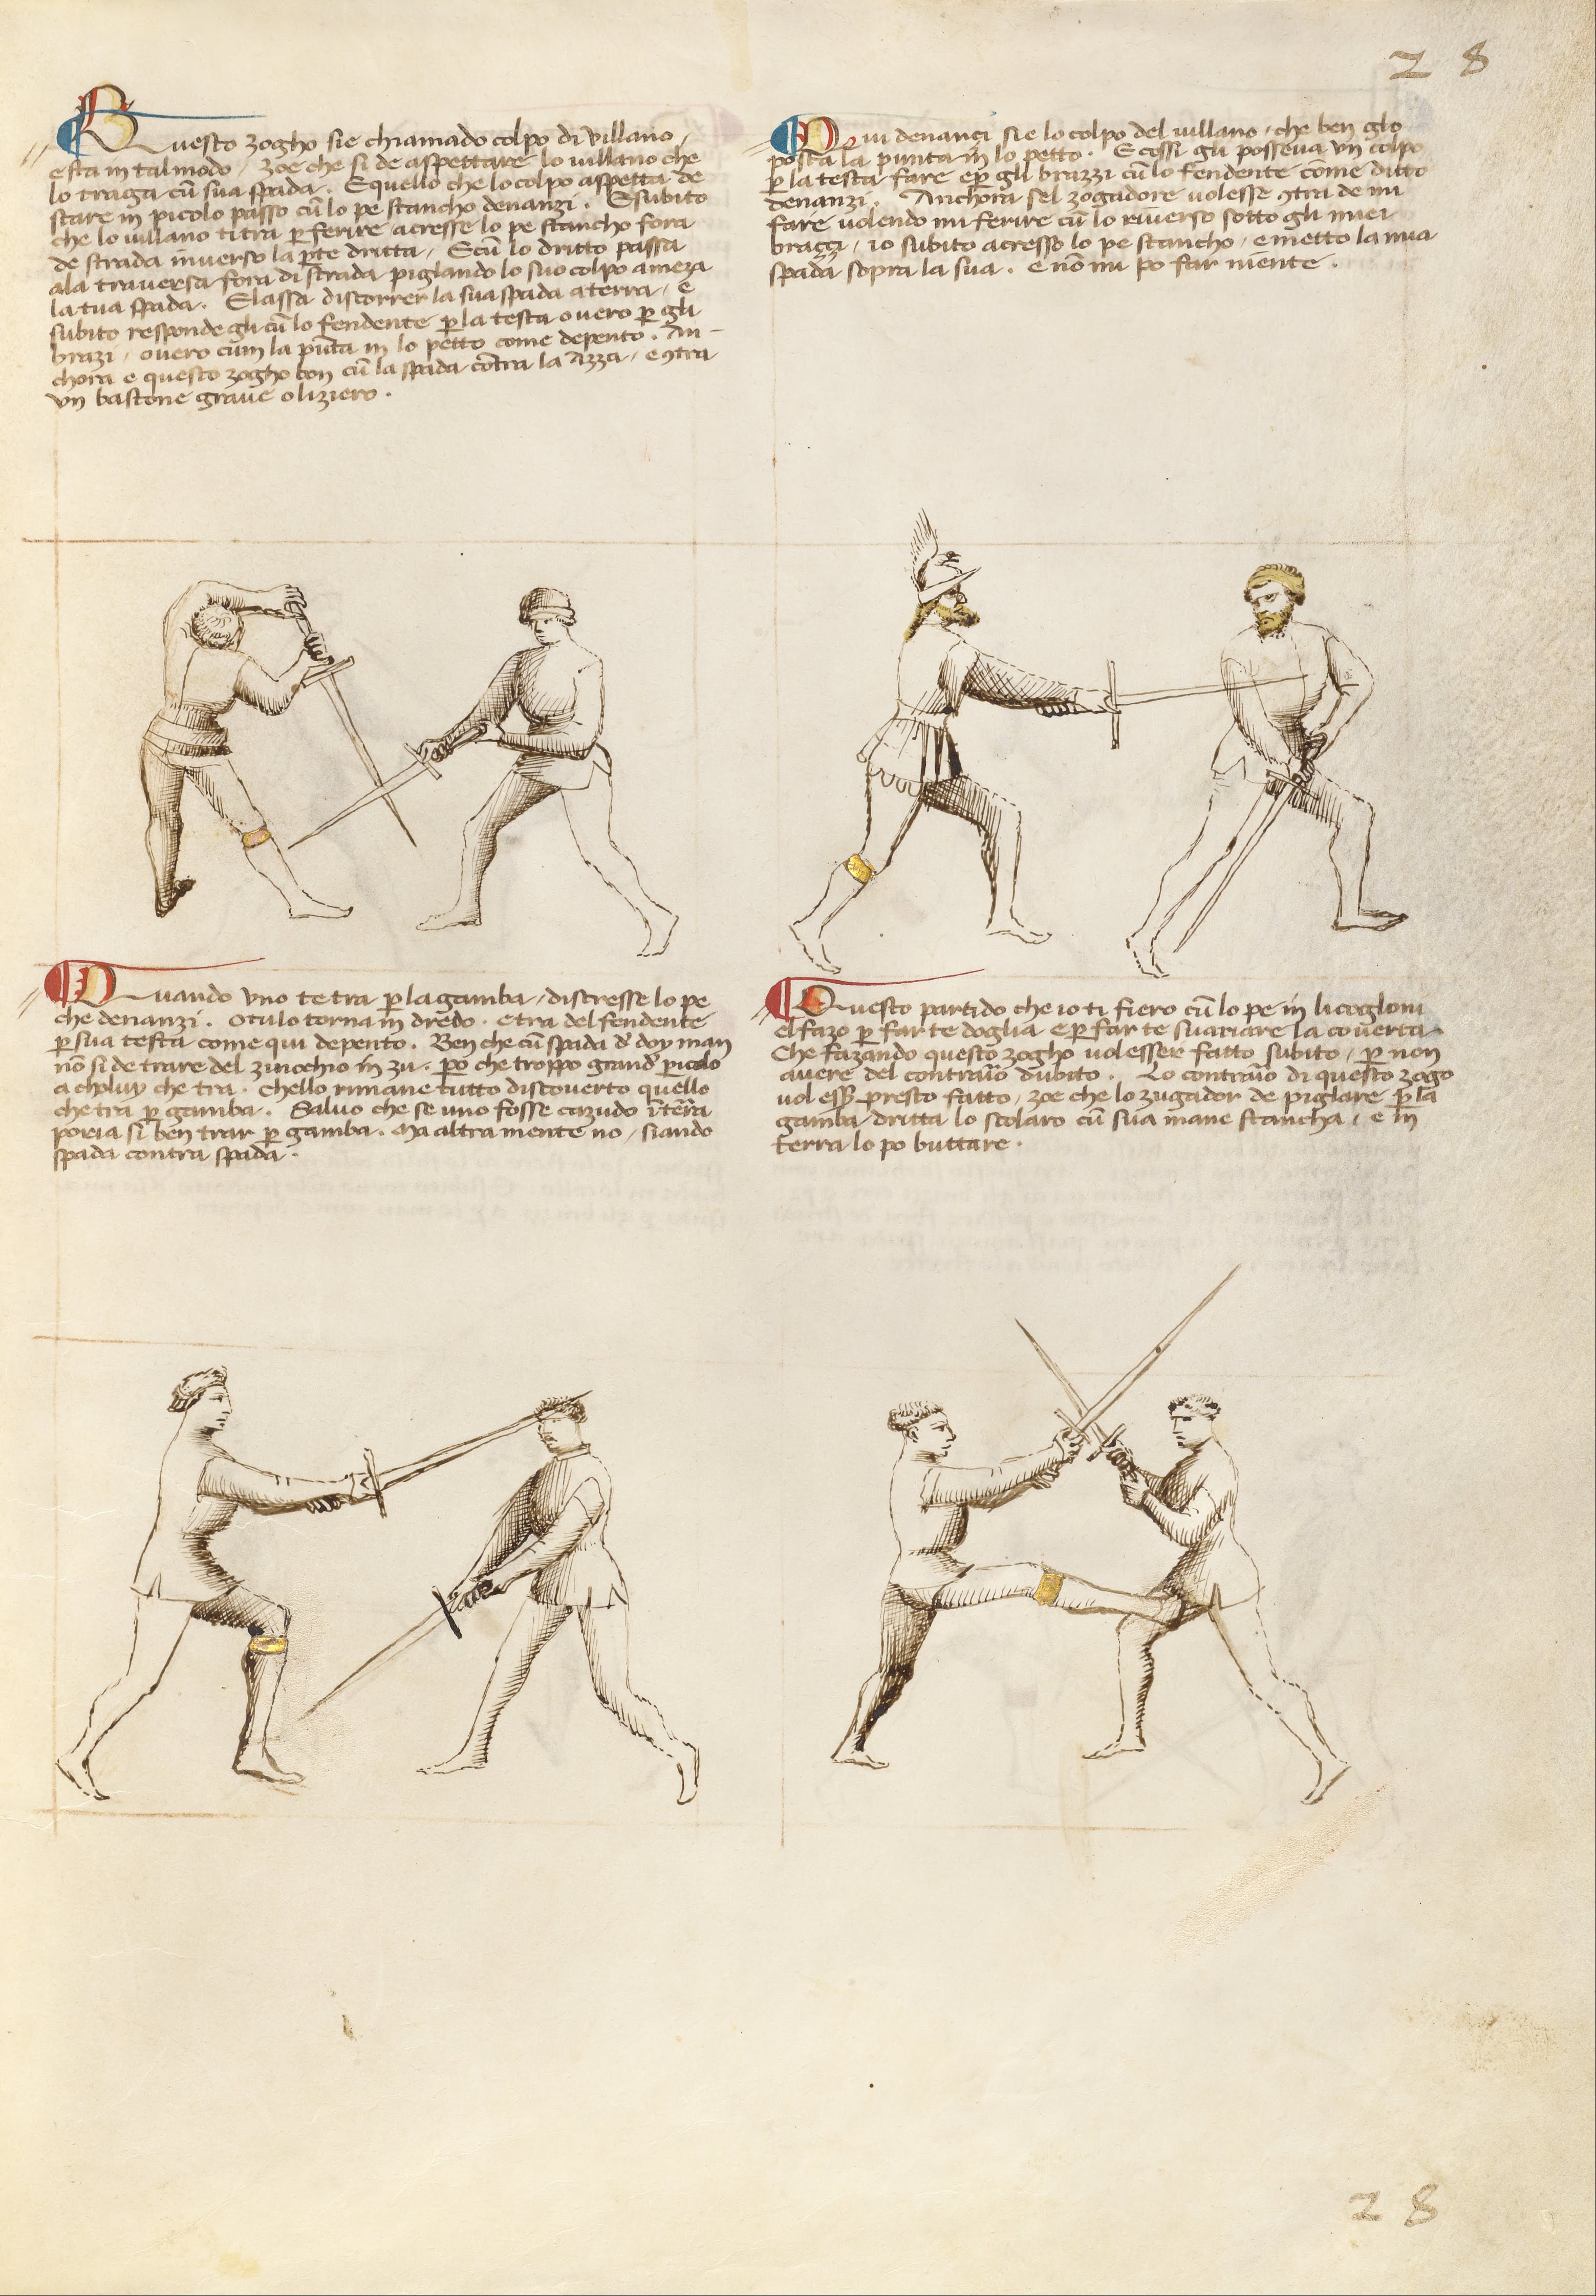 28
Questo zogho sie chiamado colpo di villano,
e sta in tal modo, zoe che si de aspettare lo villano che
lo traga cū sua spada. E quello che lo colpo aspetta de
stare in picolo passo cū lo pe stancho denanzi. E subito
che lo villano ti tra p̲ ferire acresse lo pe stancho fora
de strada inverso la p̲te dritta, E cū lo dritto passa
ala traversa fora di strada piglando lo suo colpo a meza
la tua spada. E lassa discorrer la sua spada a terra, e
subito responde gli cū lo fendente p̲ la testa overo p̲ gli
brazi, overo cum la pūta in lo petto come depento. An-
chora e questo zogho bon cū la spada cōtra la Azza, e ꝯtra
un bastone grave o liziero.
Qui denanci sie lo colpo del villano, che ben glo
posta la punta in lo petto. E cossi gli posseva un colpo
p̲ la testa fare e p̲ gli brazzi cū lo fendente cōme ditto
denanzi. Anchora sel zogadore volesse ꝯtra de mi
fare volendo mi ferire cū lo riverso sotto gli miei
braçci, io subito acresso lo pe stancho, e metto la mia
spada sopra la sua. e nō mi po far niente.
Quando uno te tra p̲ la gamba, discresse lo pe
che denanzi. o tu lo torna in dredo. e tra del fendente
p̲ sua testa come qui depento. Ben che cū spada d' doy man
nō si de trare del zinochio in zu. p̲o che troppo grand' p̲icolo
a choluy che tra. Chello rimane tutto discoverto quello
che tra p̲ gamba. Salvo che se uno fosse cazudo ī tēra
poria si ben trar p̲ gamba. Ma altra mente no, siando
spada contra spada.
Questo partido che io ti fiero cū lo pe in li coglioni
el fazo p̲ far te doglia e p̲ far te svariare la coverta.
Che fazando questo zogho vol esser fatto subito, p̲ non
avere del contrario dubito. Lo contrario di questo zogo
vol ess' presto fatto, zoe che lo zugador de piglare p̲ la
gamba dritta lo scolaro cū sua mane stancha, e in
terra lo po buttare.
28